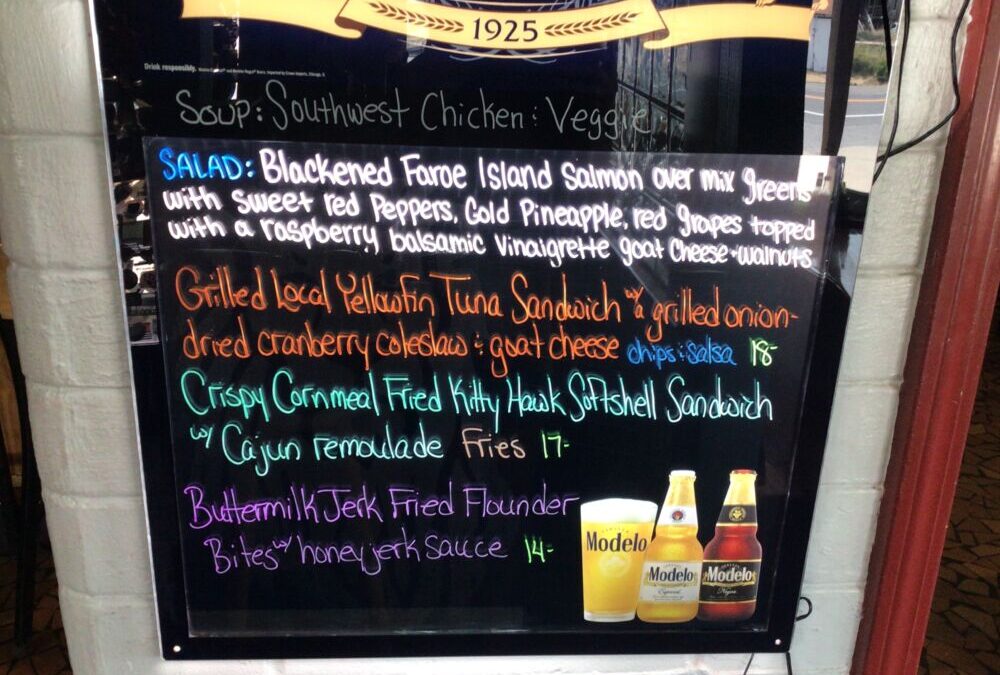 1925
Drink responsibly.
Soup: Southwest Chicken : Veggie
SALAD: Blackened Faroe Island Salmon over mix greens
with sweet red Peppers, Gold Pineapple, red grapes topped
with a raspberry balsamic Vinaigrette goat cheese + walnuts
Grilled Local Yellowfin Tuna Sandwich w/ a grilled onion-
dried cranberry coleslaw : goat cheese chips : salsa 18-
Crispy Cornmeal Fried Kitty Hawk Softshell Sandwich
w/ Cajun remoulade Fries 17-
Buttermilk Jerk Fried Flounder
Bites w/ honey jerk sauce 14-
Modelo
Modelo
Especial
Modelo
Negra